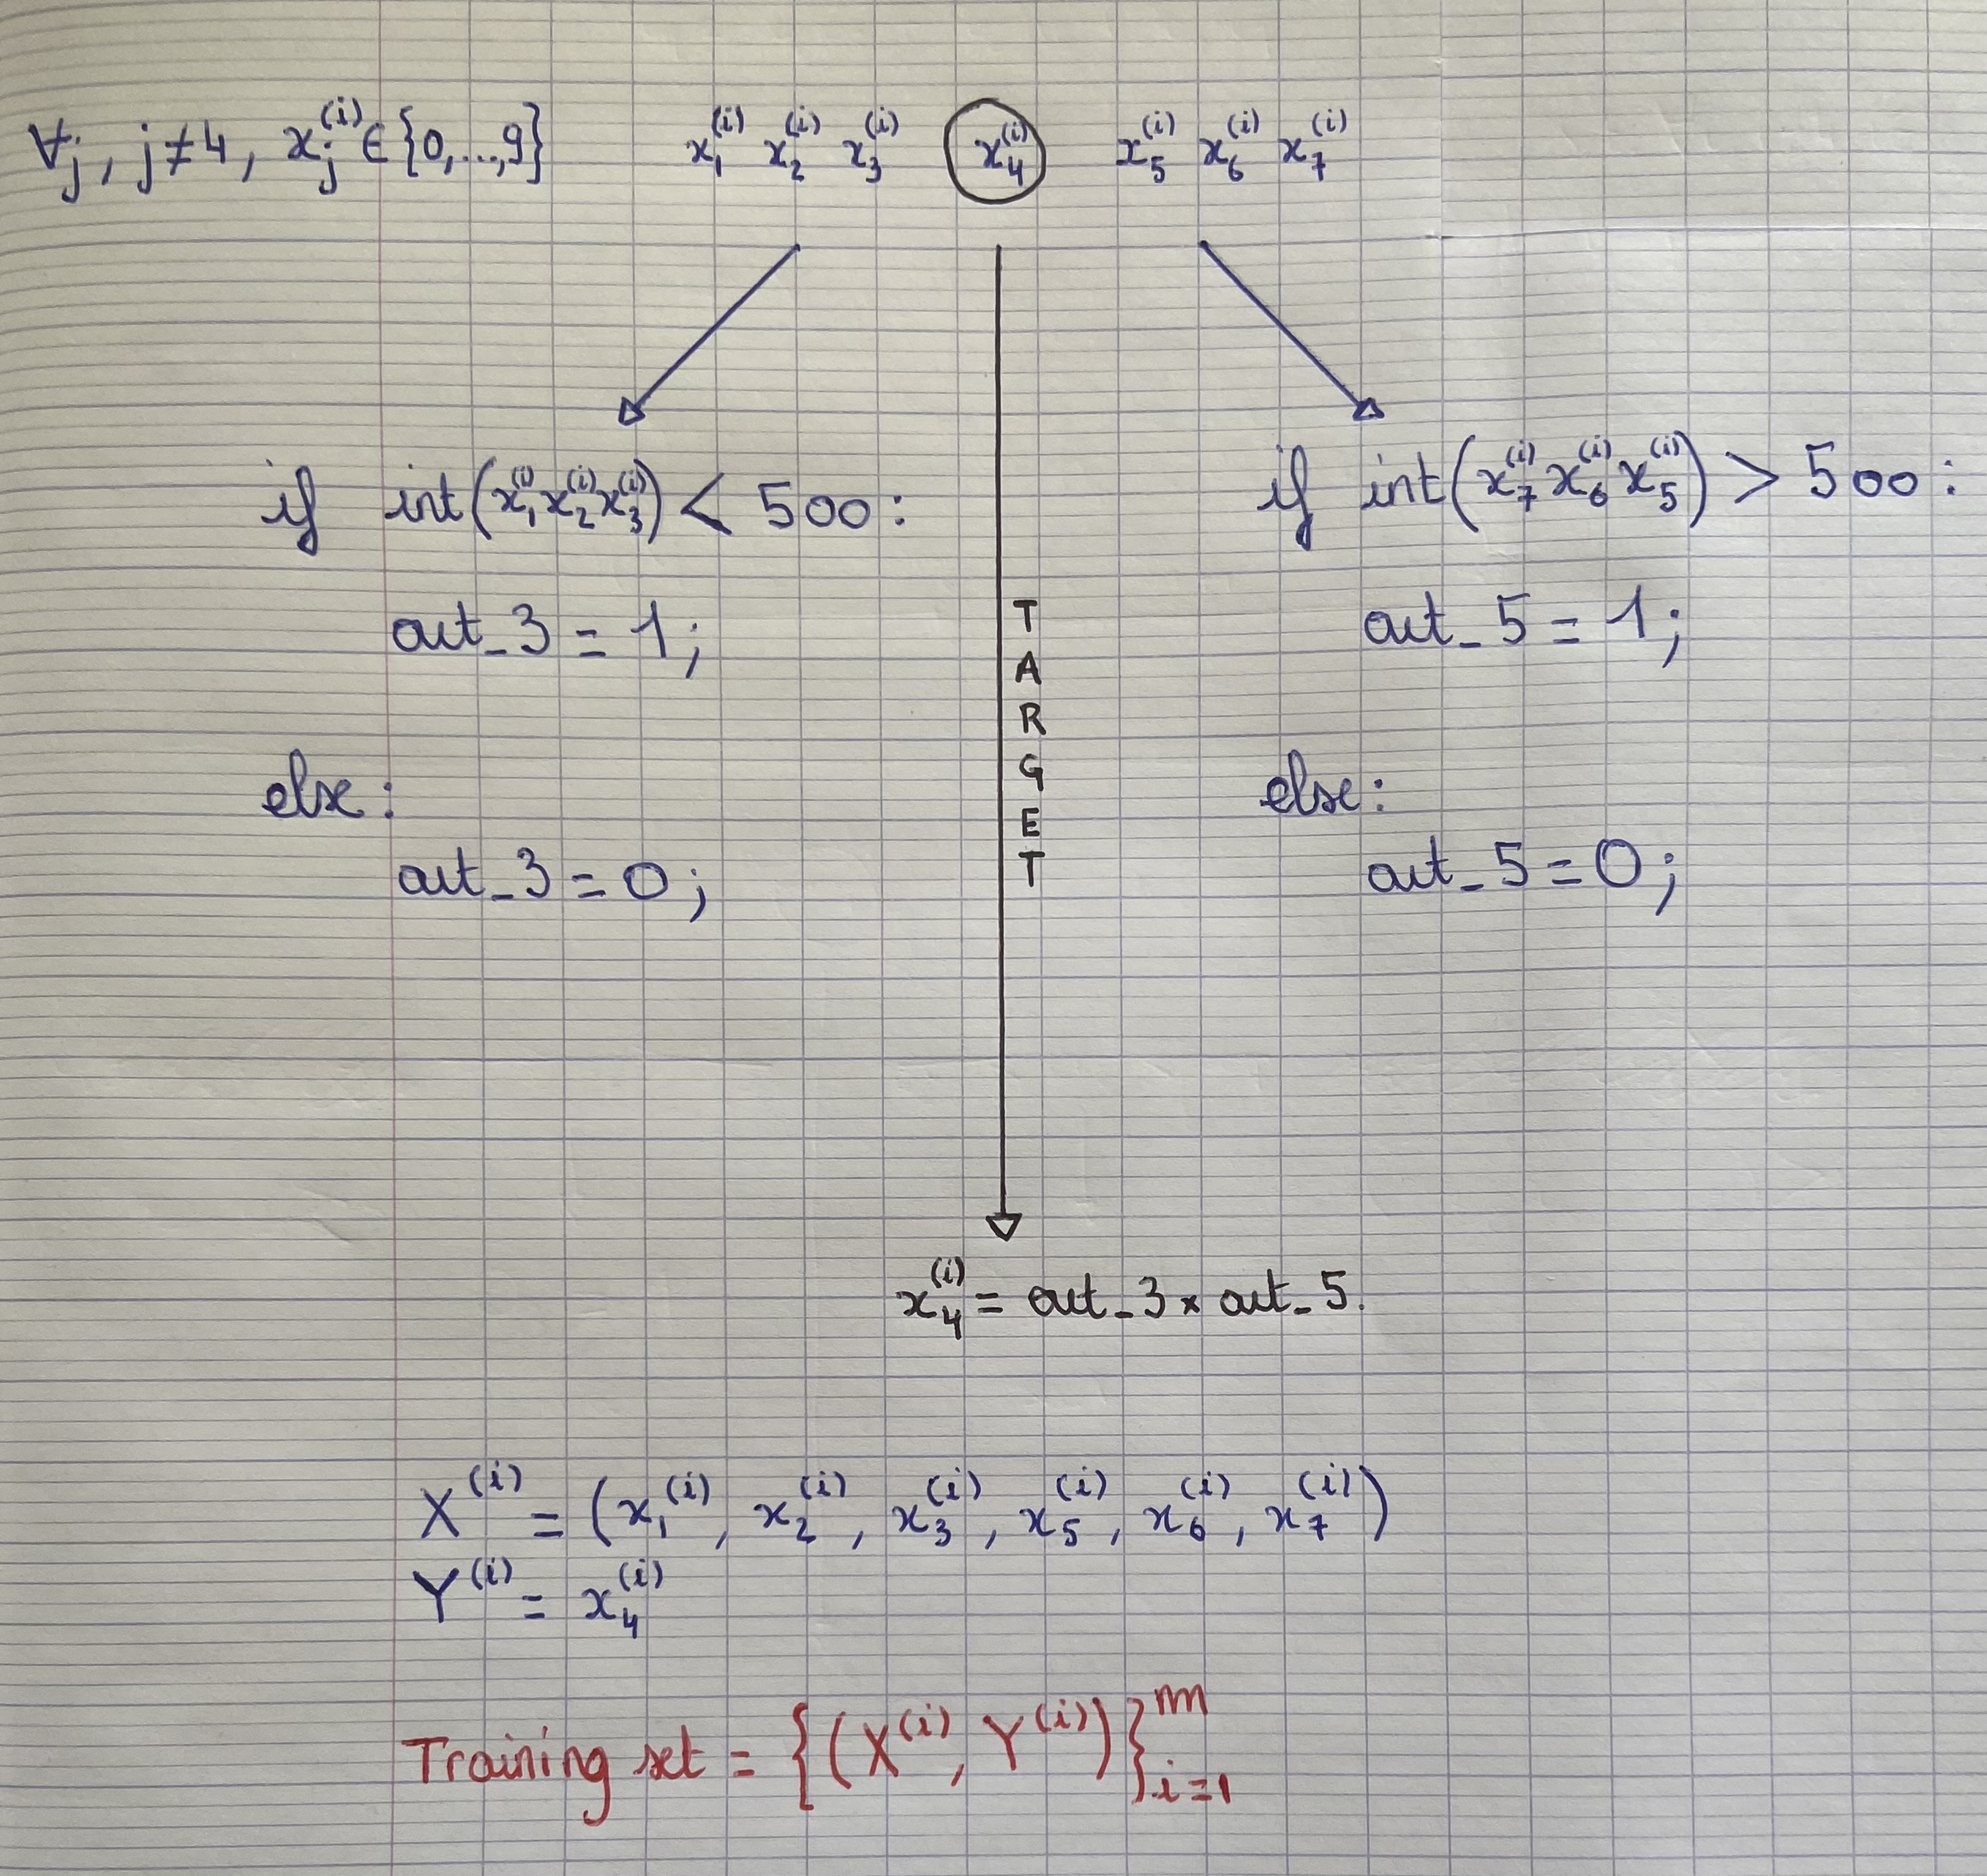 ∀j, j≠4, x_j^(i) ∈ {0,...,9} x_1^(i) x_2^(i) x_3^(i) x_4^(i) x_5^(i) x_6^(i) x_7^(i)
if int(x_1^(i) x_2^(i) x_3^(i)) < 500:
out_3 = 1;
else:
out_3 = 0;
TARGET
if int(x_7^(i) x_6^(i) x_5^(i)) > 500:
out_5 = 1;
else:
out_5 = 0;
x_4^(i) = out_3 × out_5.
X^(i) = (x_1^(i), x_2^(i), x_3^(i), x_5^(i), x_6^(i), x_7^(i))
Y^(i) = x_4^(i)
Training set = {(X^(i), Y^(i))}_{i=1}^m